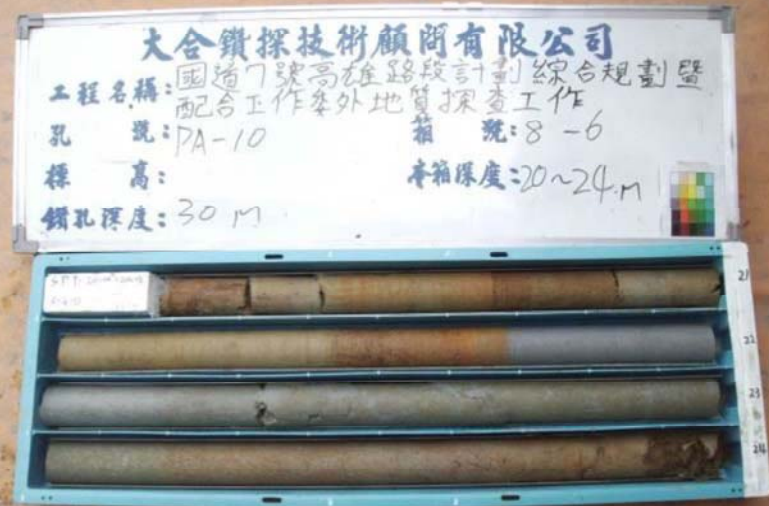 大合鑽探技術顧問有限公司
工程名稱:國道7號高雄路段計劃綜合規劃暨
配合工作委外地質探查工作
孔 號:PA-10 箱 號:8-6
標 高: 本箱深度:20~24m
鑽孔深度:30m
21
22
23
24